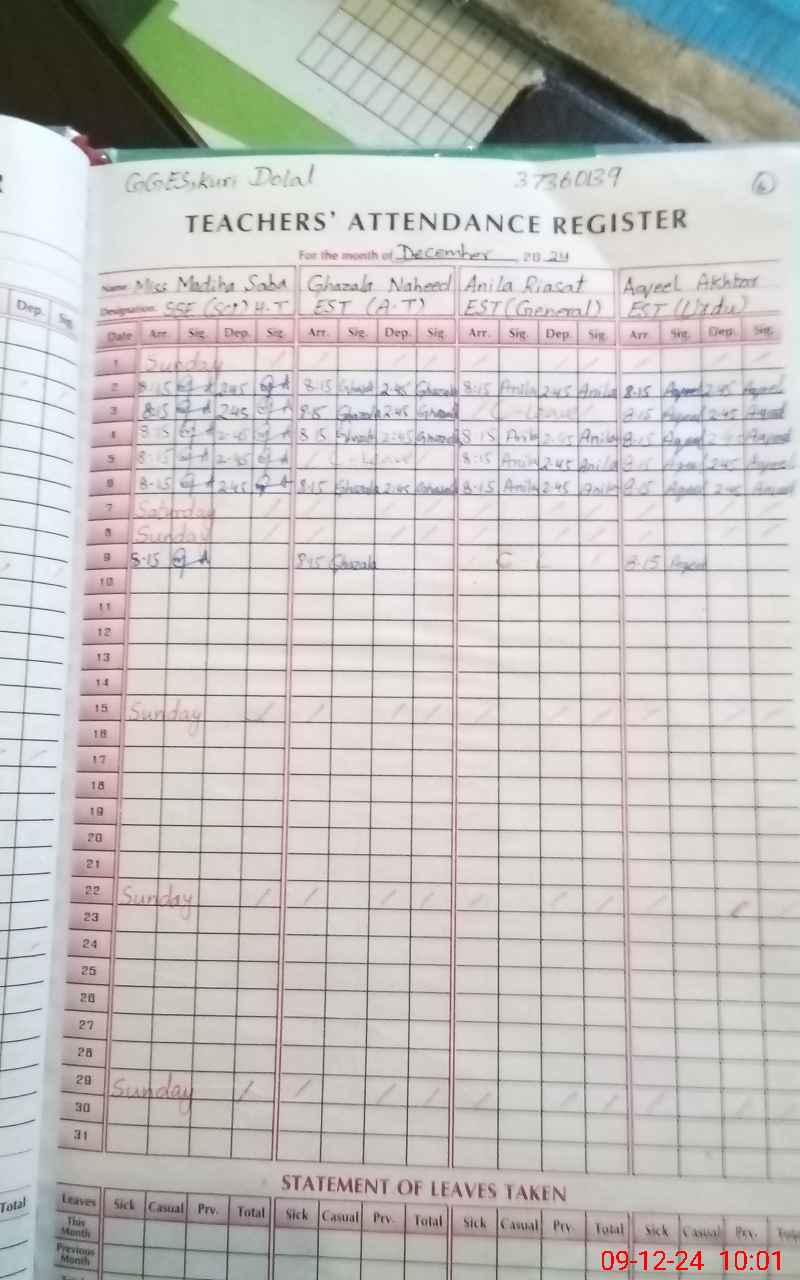 GGES, Kuri Dolal 37360139 6
TEACHERS' ATTENDANCE REGISTER
For the month of December 2024
Name Miss Madiha Saba Ghazala Naheed Anila Riasat Aqeel Akhtar
Designation. SSE (Sci) H.T EST (A.T) EST (General) EST (Urdu)
Dep. Sig.
Date Arr. Sig. Dep. Sig. Arr. Sig. Dep. Sig. Arr. Sig. Dep. Sig. Arr. Sig. Dep. Sig.
1 Sunday
2 8-15 2:45 8:15 Ghazala 2:45 Ghazala 8:15 Anila 2:45 Anila 8-15 Aqeel 2:45 Aqeel
3 8:15 2:45 8:15 Ghazala 2:45 Ghazala C-Leave 8-15 Aqeel 2:45 Aqeel
4 8-15 2-45 8 15 Ghazala 2:45 Ghazala 8 15 Anila 2:45 Anila 8-15 Aqeel 2:45 Aqeel
5 8-15 2-45 C-Leave 8:15 Anila 2:45 Anila 8-15 Aqeel 2:45 Aqeel
6 8-15 2:45 8:15 Ghazala 2:45 Ghazala 8-15 Anila 2:45 Anila 8-15 Aqeel 2:45 Aqeel
7 Saturday
8 Sunday
9 8-15 8:15 Ghazala C L 8-15 Aqeel
10
11
12
13
14
15 Sunday
16
17
18
19
20
21
22 Sunday
23
24
25
26
27
28
29 Sunday
30
31
STATEMENT OF LEAVES TAKEN
Total
Leaves Sick Casual Prv. Total Sick Casual Prv. Total Sick Casual Prv. Total Sick Casual Prv. Total
This Month
Previous Month
09-12-24 10:01